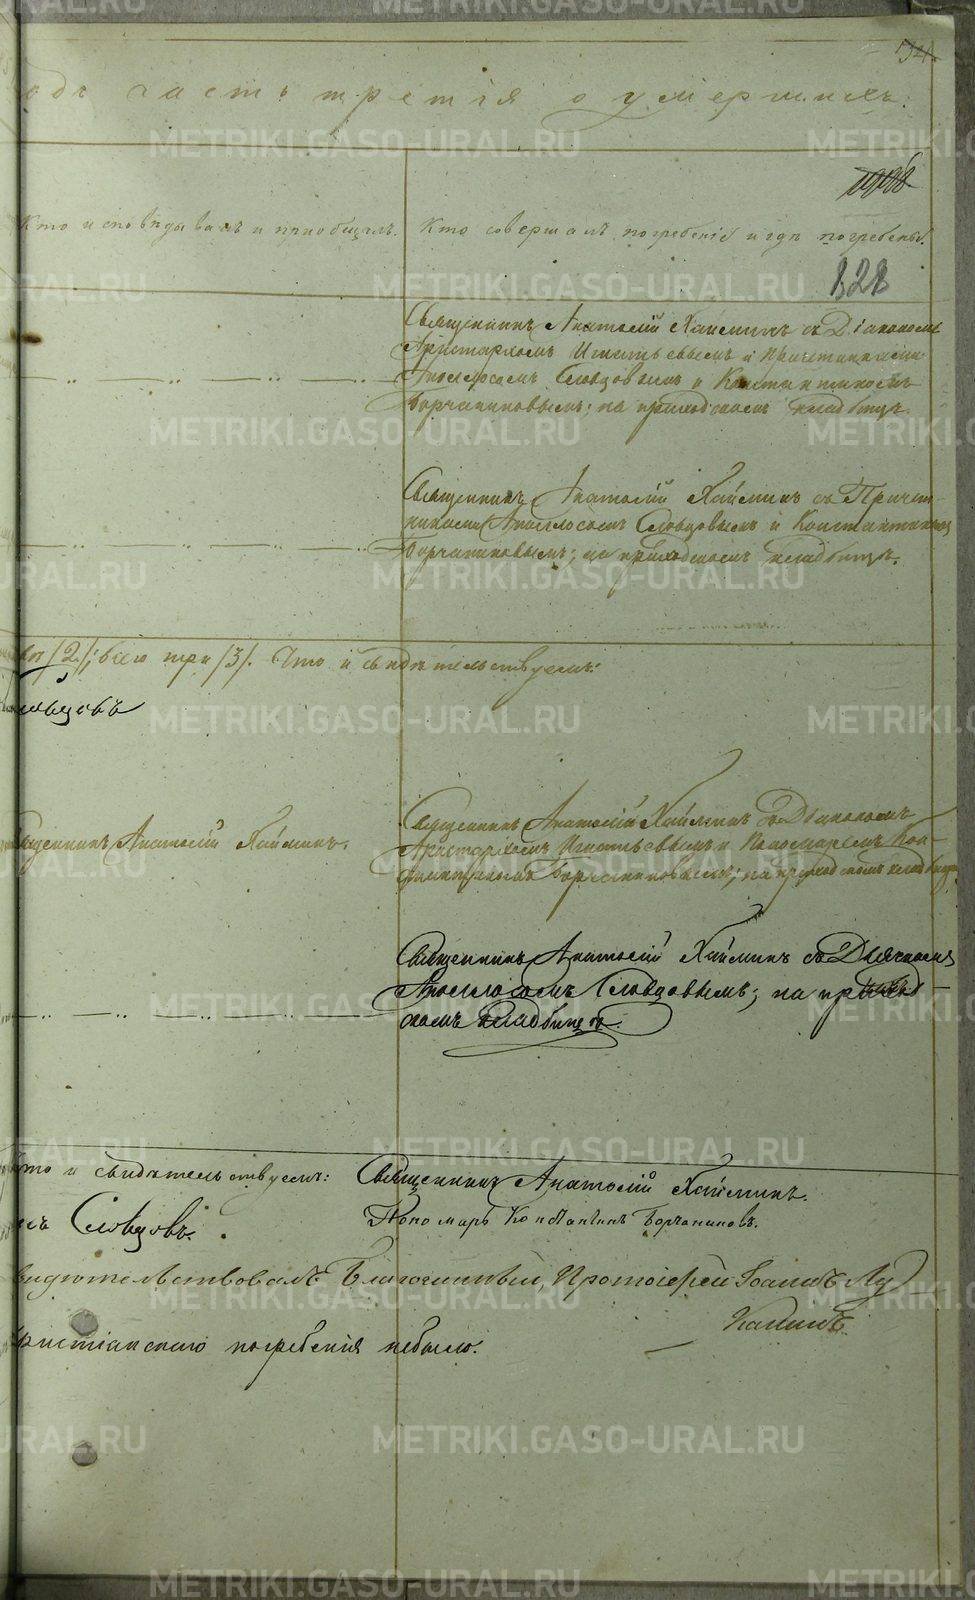 одъ часть третія о умершихъ.
Кто исповѣдывалъ и пріобщалъ.
Кто совершалъ погребеніе и гдѣ погребены.
828
Священникъ Анатолій Хайминъ съ Діакономъ
Аристархомъ Игнатьевымъ и Причетниками
Аполлосомъ Словцовымъ и Константиномъ
Борчаниновымъ; на приходскомъ кладбищѣ.
Священникъ Анатолій Хайминъ съ Причет-
никами Аполлосомъ Словцовымъ и Константиномъ
Борчаниновымъ; на приходскомъ кладбищѣ.
/2/; всего три /3/. Что и свидѣтельствуемъ:
ловцовъ
Священникъ Анатолій Хайминъ.
Священникъ Анатолій Хайминъ съ Діакономъ
Аристархомъ Игнатьевымъ и Пономаремъ Кон-
стантиномъ Борчаниновымъ; на приходскомъ кладбищѣ.
Священникъ Анатолій Хайминъ съ Дьячкомъ
Аполлосомъ Словцовымъ; на приход-
скомъ кладбищѣ.
Что и свидѣтельствуемъ: Священникъ Анатолій Хайминъ.
съ Словцовъ. Пономарь Константинъ Борчаниновъ.
видѣтельствовалъ Благочинный, Протоіерей Іоаннъ Лу-
канинъ.
христіанскаго погребенія небыло.
METRIKI.GASO-URAL.RU